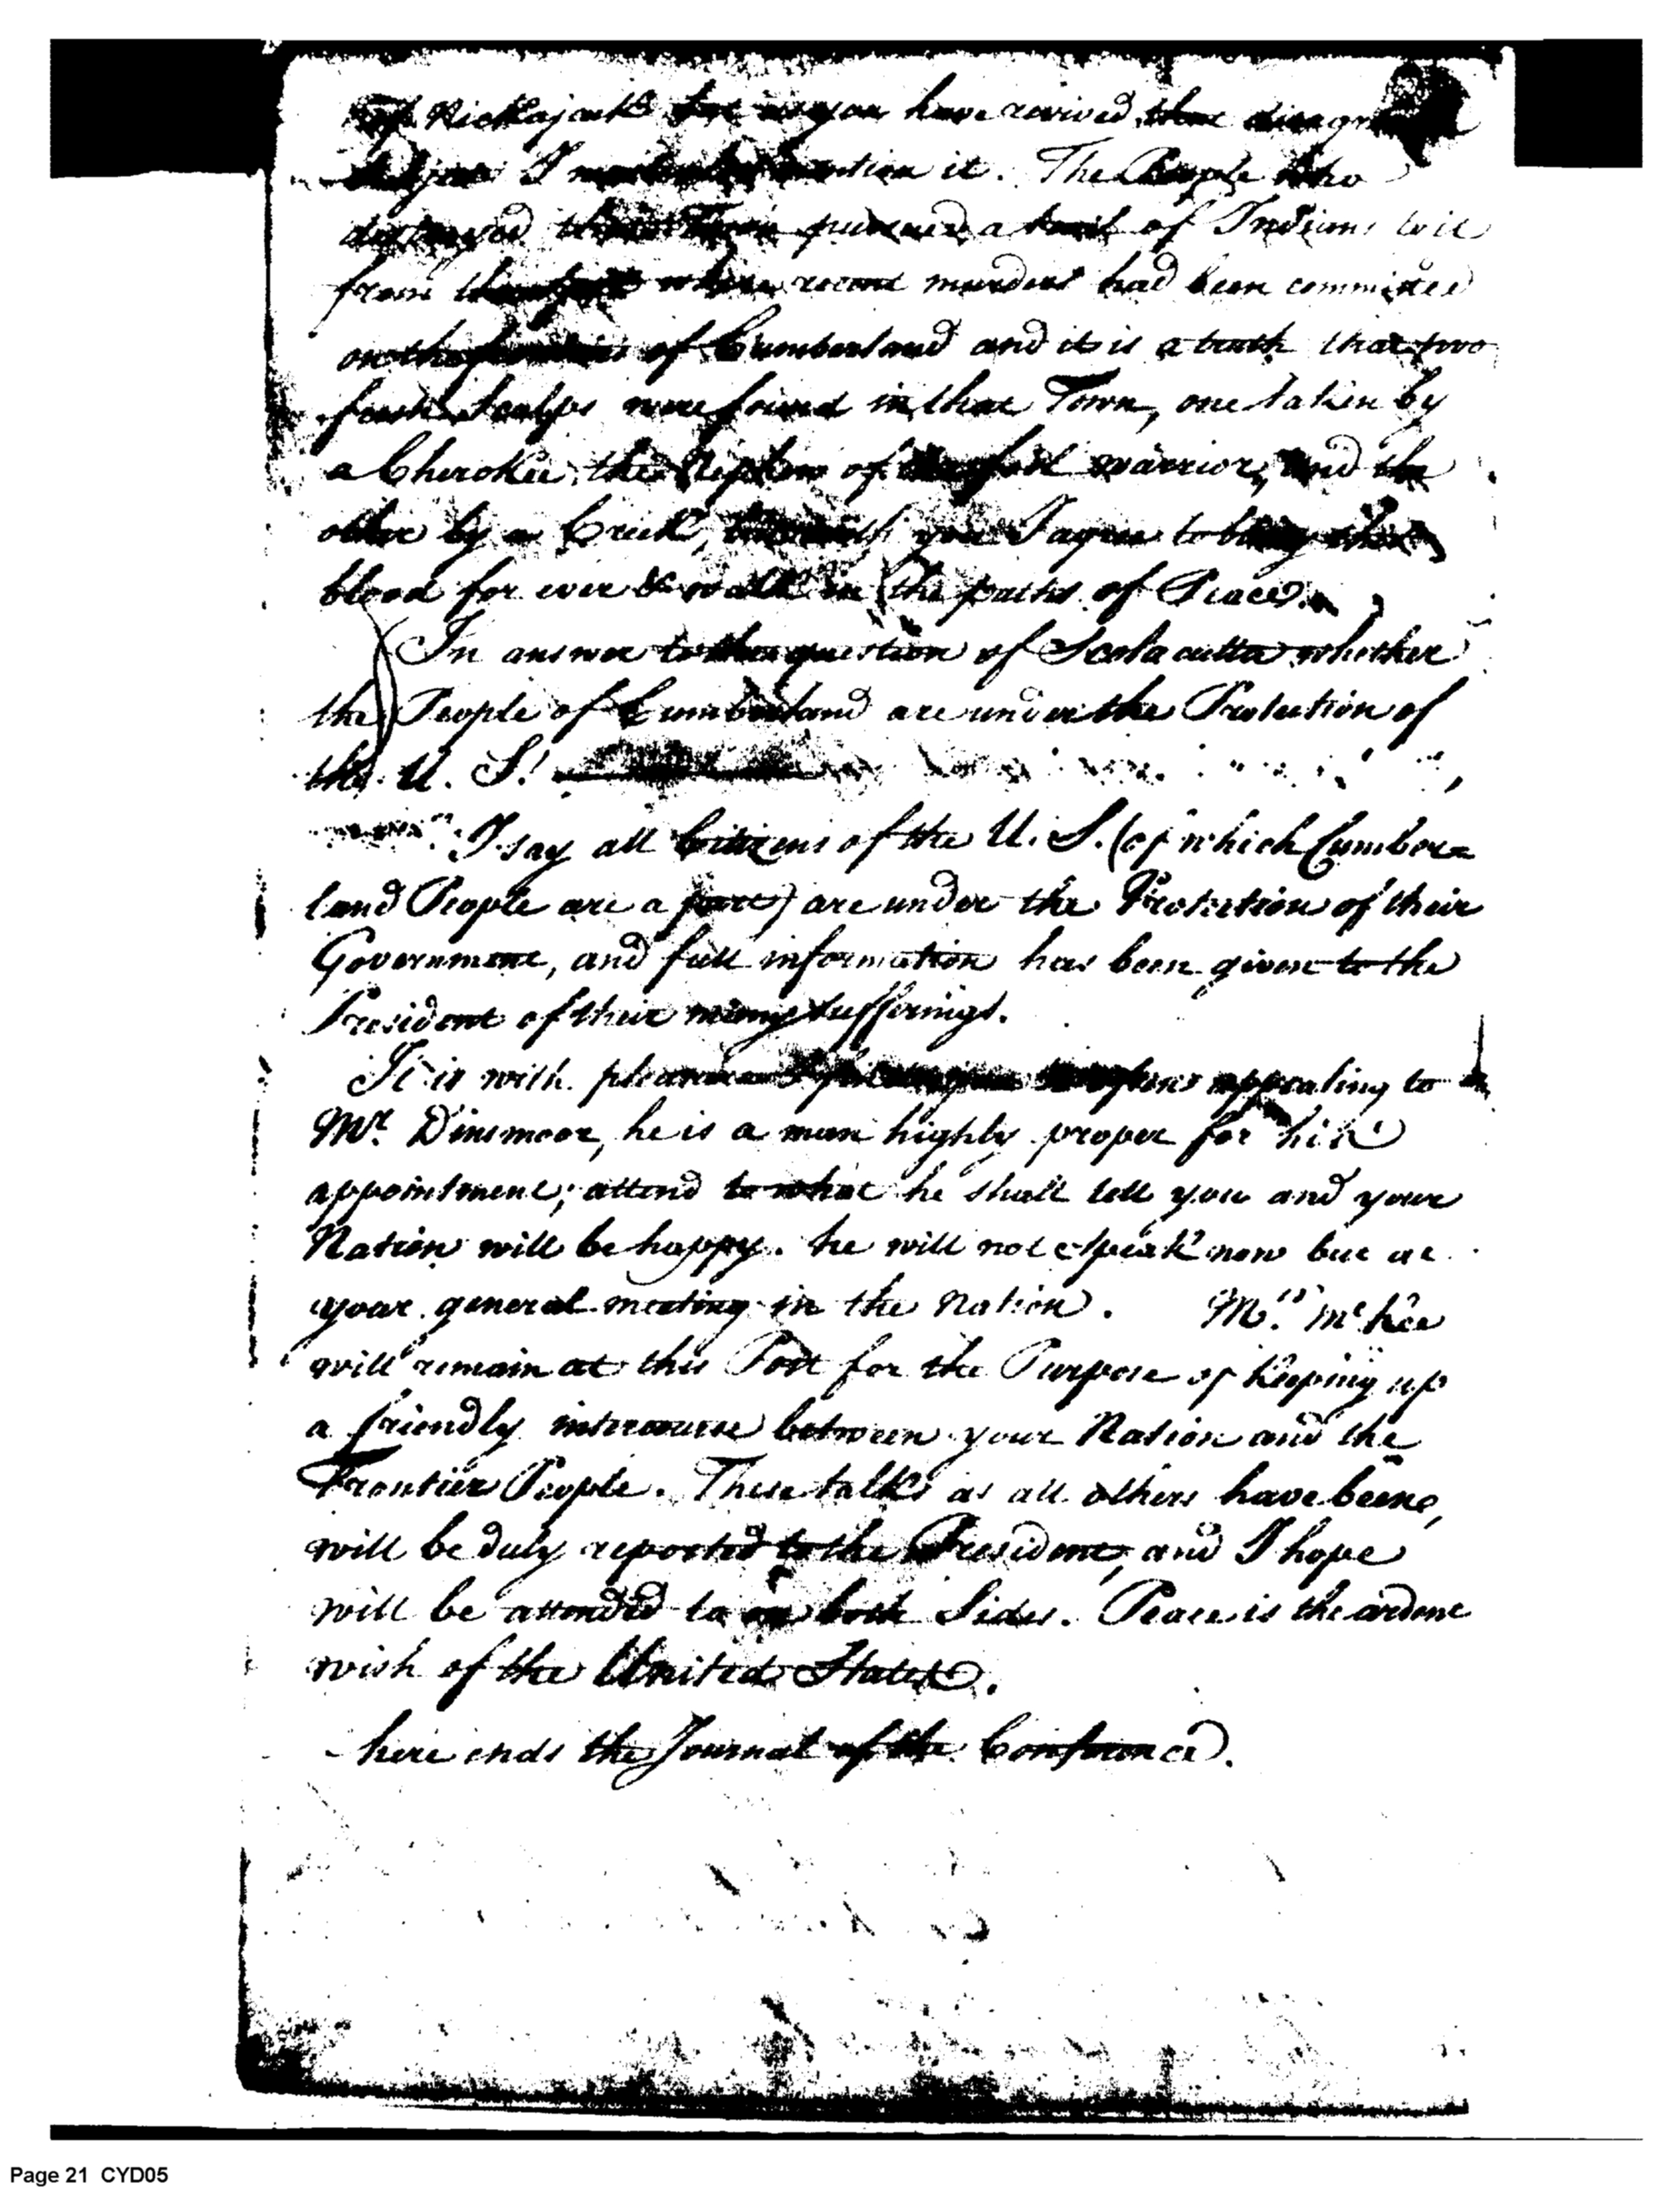 of Nickajack but as you have revived that
I must mention it. The People who
destroyed that Town pursued a trail of Indians
from the where recent murders had been committed
on the frontiers of Cumberland and it is a truth that two
fresh Scalps were found in that Town, one taken by
a Cherokee, the Nephew of warrior, and the
other by a Creek, you I agree to bury
blood for ever & walk in the paths of Peace.
In answer to the question of Scolacutta whether
the People of Cumberland are under the Protection of
the U. S.
I say all Citizens of the U. S. (of which Cumber=
land People are a part) are under the Protection of their
Government, and full information has been given to the
President of their many sufferings.
It is with pleasure I appealing to
Mr. Dinsmoor, he is a man highly proper for his
appointment; attend to what he shall tell you and your
Nation will be happy. he will not speak now but at
your general meeting in the Nation. Mr. McKee
will remain at this Post for the Purpose of keeping up
a friendly intercourse between your Nation and the
Frontier People. These talks as all others have been,
will be duly reported to the President, and I hope
will be attended to on both Sides. Peace is the ardent
wish of the United States.
here ends the Journal of the Conference.
Page 21 CYD05